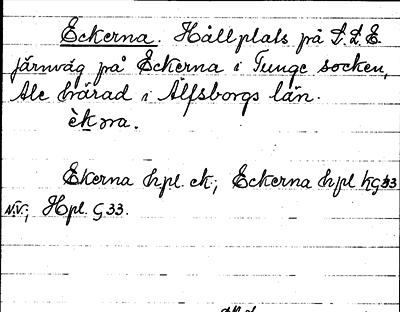 Eckerna. Hållplats på S.L.E.
järnväg på Eckerna i Tunge socken,
Ale härad i Älfsborgs län.
èkɲra.
Ekerna hpl. ek.; Eckerna hpl KG33
N.V.; Hpl. G33.